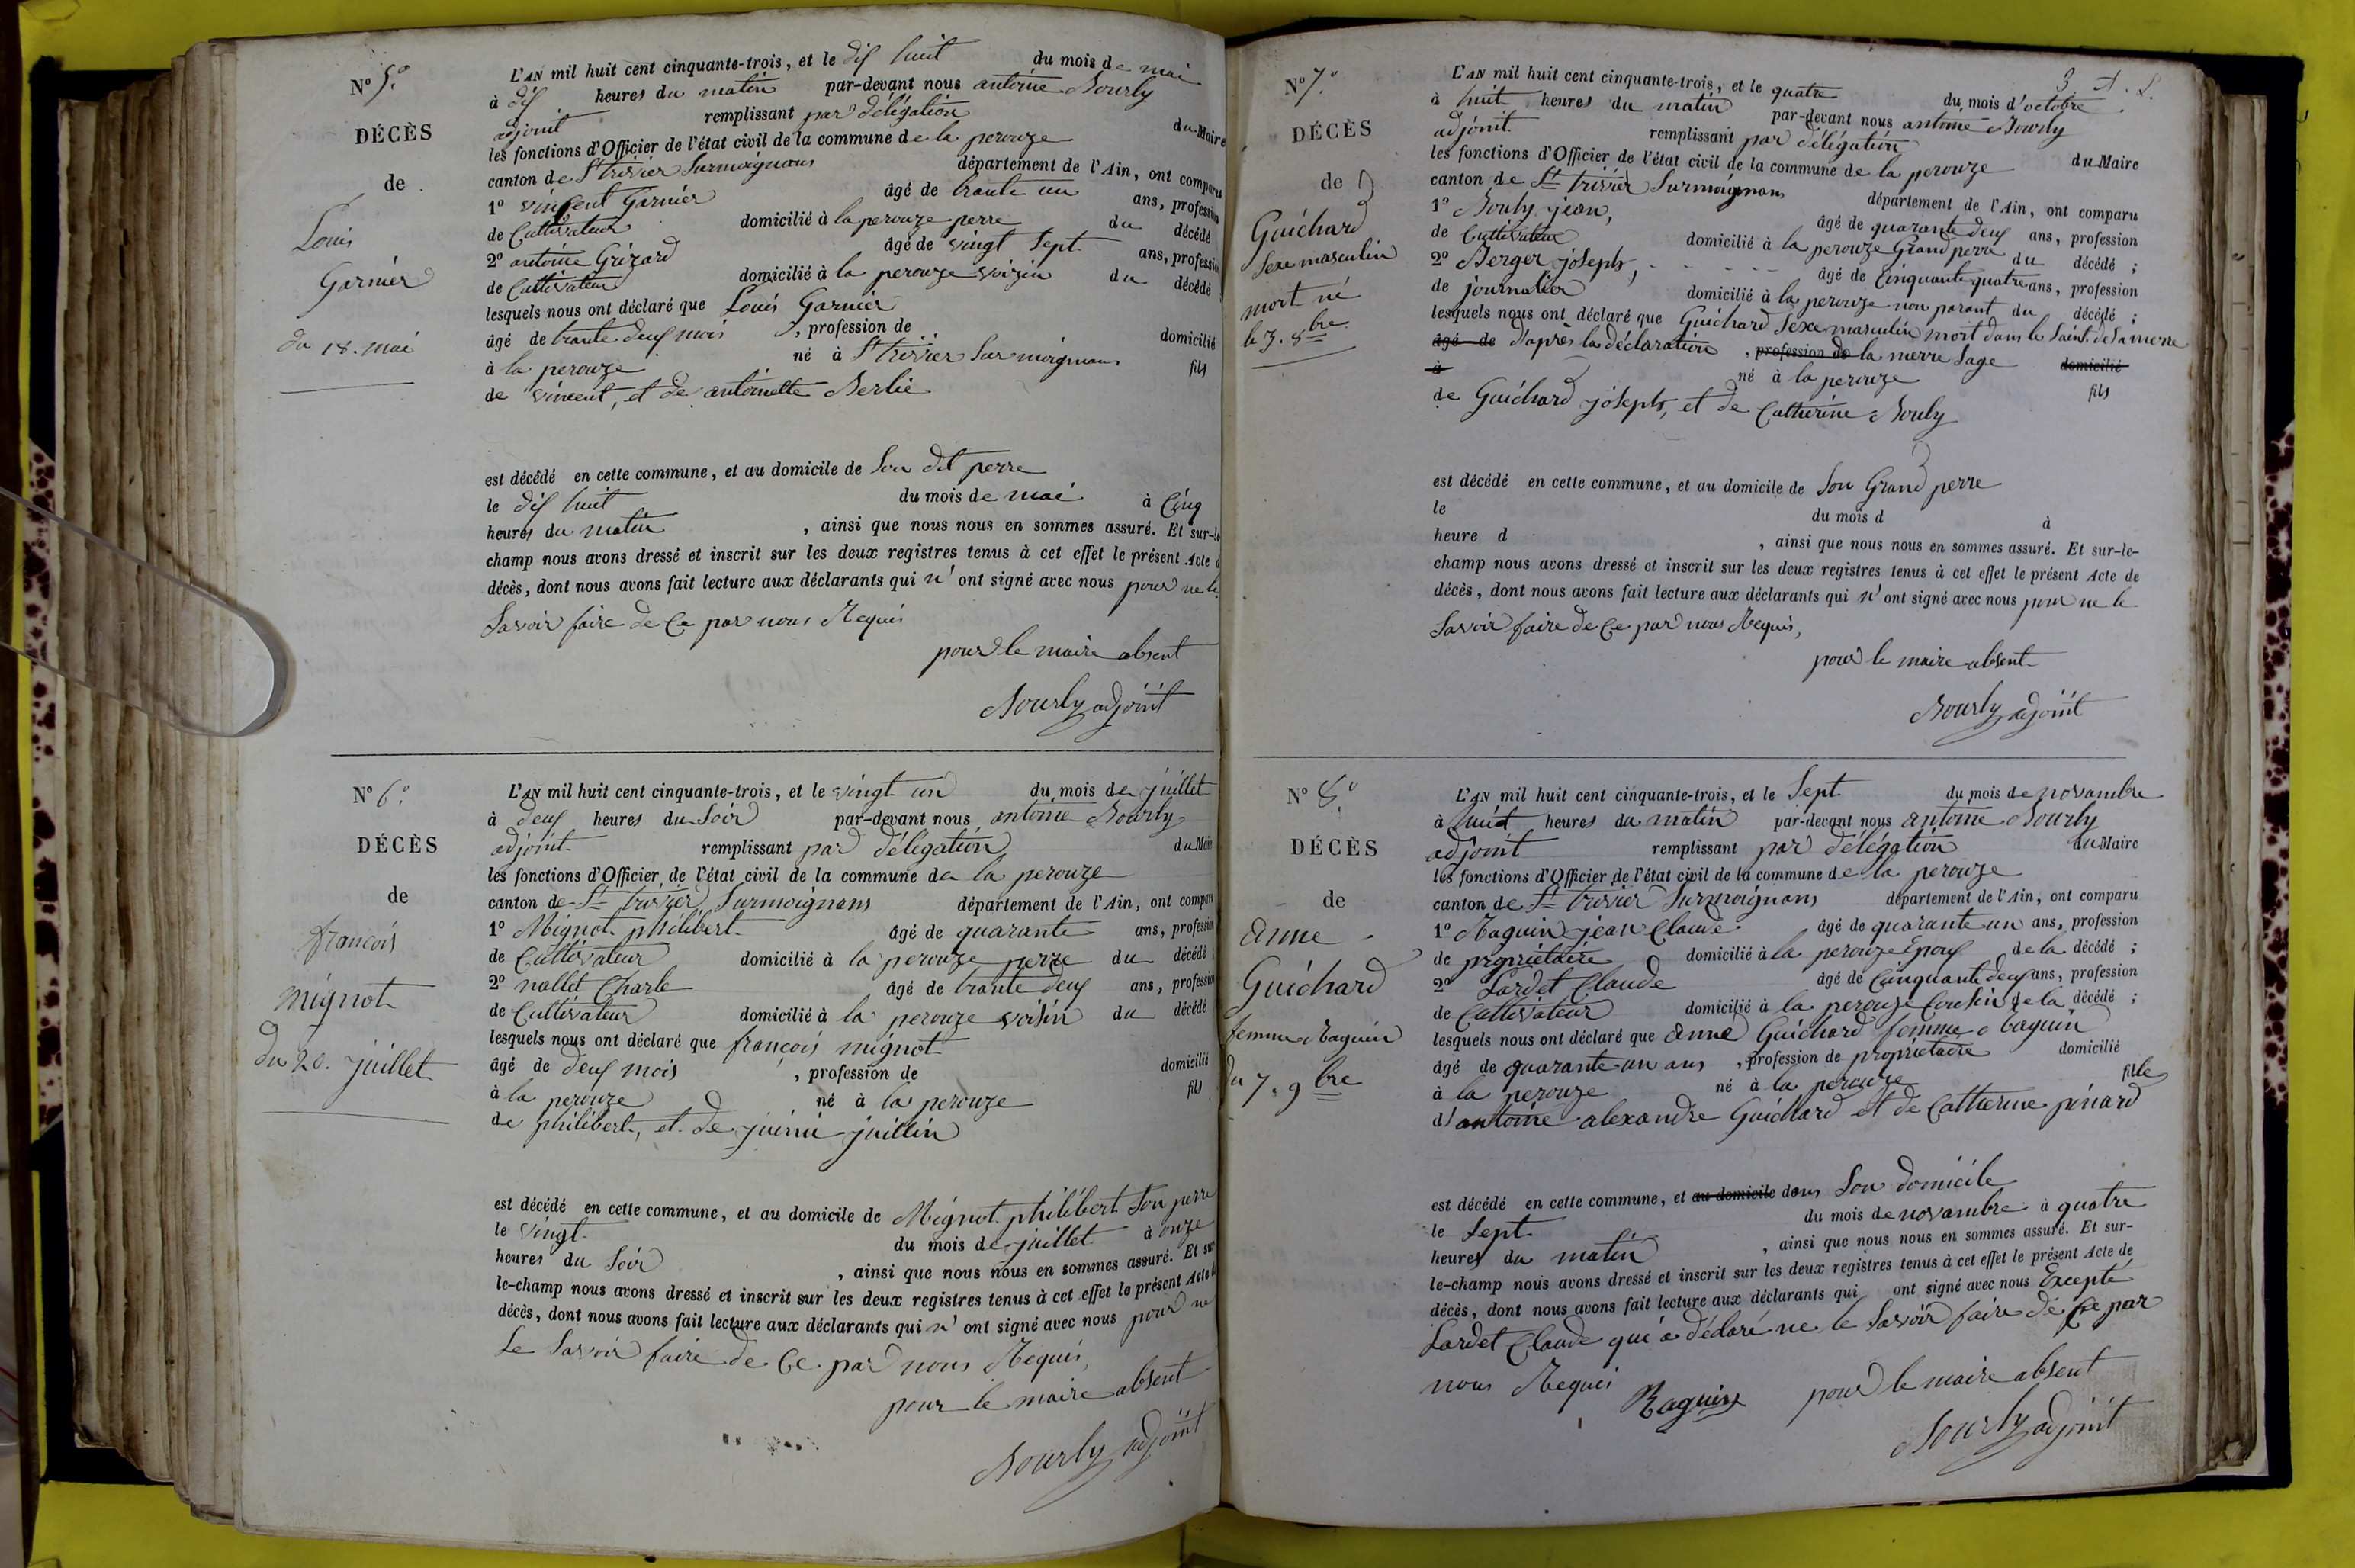 N° 5°
DÉCÈS
de
Louis
Garnier
du 18. mai
L'AN mil huit cent cinquante-trois, et le dix huit du mois de mai
à dix heures du matin par-devant nous antoine Bourly
adjoint remplissant par délégation du Maire
les fonctions d'Officier de l'état civil de la commune de la perouze
canton de St trivier Surmoignans département de l'Ain, ont comparu
1° vincent Garnier âgé de trante un ans, profession
de Cultivateur domicilié à la perouze perre du décédé
2° antoine Grizard âgé de vingt Sept ans, profession
de Cultivateur domicilié à la perouze voizin du décédé
lesquels nous ont déclaré que Louis Garnier
âgé de trante deux mois , profession de domicilié
à la perouze né à St trivier Sur moignans fils
de vincent, et de antoinette Berlie
est décédé en cette commune, et au domicile de Son dit perre
le dix huit du mois de mai à Cinq
heures du matin , ainsi que nous nous en sommes assuré. Et sur-le
champ nous avons dressé et inscrit sur les deux registres tenus à cet effet le présent Acte d
décès, dont nous avons fait lecture aux déclarants qui n'ont signé avec nous pour ne le
Savoir faire de Ce par nous Requis
pour le maire absent
Bourly adjoint
N° 6°
DÉCÈS
de
francois
mignot
du 20. juillet
L'AN mil huit cent cinquante-trois, et le vingt un du mois de juillet
à deux heures du Soir par-devant nous antoine Bourly
adjoint remplissant par délégation du Mair
les fonctions d'Officier de l'état civil de la commune de la perouze
canton de St trivier Surmoignans département de l'Ain, ont comparu
1° Mignot philibert âgé de quarante ans, profession
de Cultivateur domicilié à la perouze perre du décédé
2° nallet Charle âgé de trante deux ans, profession
de Cultivateur domicilié à la perouze voisin du décédé
lesquels nous ont déclaré que francois mignot
âgé de deux mois , profession de domicilié
à la perouze né à la perouze fils
de philibert, et de juillin
est décédé en cette commune, et au domicile de Mignot philibert Son perre
le vingt du mois de juillet à onze
heures du Soir , ainsi que nous nous en sommes assuré. Et sur
le-champ nous avons dressé et inscrit sur les deux registres tenus à cet effet le présent Acte de
décès, dont nous avons fait lecture aux déclarants qui n'ont signé avec nous pour ne
Le Savoir faire de Ce par nous Requis,
pour le maire absent
Bourly adjoint
3
N° 7°
DÉCÈS
de
Guichard
Sexe masculin
mort né
le 3. 8bre
L'AN mil huit cent cinquante-trois, et le quatre du mois d'octobre
à huit heures du matin par-devant nous antoine Bourly
adjoint remplissant par délégation du Maire
les fonctions d'Officier de l'état civil de la commune de la perouze
canton de St trivier Surmoignans département de l'Ain, ont comparu
1° Bouly jean, âgé de quarante deux ans, profession
de Cultivateur domicilié à la perouze Grand perre du décédé ;
2° Berger joseph, âgé de Cinquante quatre ans, profession
de journalier domicilié à la perouze non parant du décédé ;
lesquels nous ont déclaré que Guichard Sexe masculin mort dans le Saint de Sa merre
âgé de d'après la déclaration , profession de la merre Sage domicilié
à né à la perouze fils
de Guichard joseph, et de Catherine Bouly
est décédé en cette commune, et au domicile de Son Grand perre
le du mois d à
heure d , ainsi que nous nous en sommes assuré. Et sur-le-
champ nous avons dressé et inscrit sur les deux registres tenus à cet effet le présent Acte de
décès, dont nous avons fait lecture aux déclarants qui n'ont signé avec nous pour ne le
Savoir faire de Ce par nous Requis,
pour le maire absent
Bourly adjoint
N° 8°
DÉCÈS
de
Anne
Guichard
femme Raguin
du 7. 9bre
L'AN mil huit cent cinquante-trois, et le Sept du mois de novambre
à huit heures du matin par-devant nous antoine Bourly
adjoint remplissant par délégation du Maire
les fonctions d'Officier de l'état civil de la commune de la perouze
canton de St trivier Surmoignans département de l'Ain, ont comparu
1° Raguin jean Claude âgé de quarante un ans, profession
de propriétaire domicilié à la perouze Epoux de la décédé ;
2° Lardet Claude âgé de Cinquante deux ans, profession
de Cultivateur domicilié à la perouze Cousin de la décédé ;
lesquels nous ont déclaré que Anne Guichard femme Raguin
âgé de quarante un ans , profession de propriétaire domicilié
à la perouze né à la perouze fille
d'antoine alexandre Guichard et de Catherine pinard
est décédé en cette commune, et au domicile dans Son domicile
le Sept du mois de novambre à quatre
heures du matin , ainsi que nous nous en sommes assuré. Et sur-
le-champ nous avons dressé et inscrit sur les deux registres tenus à cet effet le présent Acte de
décès, dont nous avons fait lecture aux déclarants qui ont signé avec nous Excepté
Lardet Claude qui a déclaré ne le Savoir faire de Ce par
nous Requis
Raguin pour le maire absent
Bourly adjoint